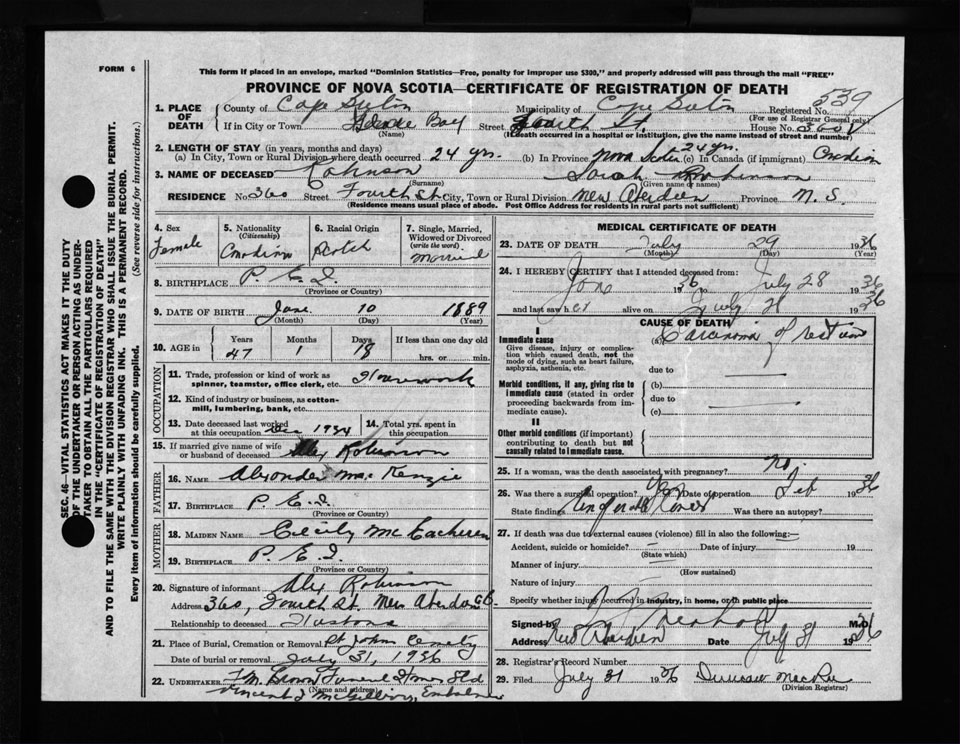 FORM 6
This form if placed in an envelope, marked "Dominion Statistics—Free, penalty for improper use $300," and properly addressed will pass through the mail "FREE"
PROVINCE OF NOVA SCOTIA—CERTIFICATE OF REGISTRATION OF DEATH
539
1. PLACE OF DEATH County of Cape Breton Municipality of Cape Breton Registered No.
(For use of Registrar General only)
If in City or Town Glace Bay Street Fourth St. House No. 360
(Name) (If death occurred in a hospital or institution, give the name instead of street and number)
2. LENGTH OF STAY (in years, months and days)
(a) In City, Town or Rural Division where death occurred 24 yrs. (b) In Province Nova Scotia 24 yrs. (c) In Canada (if immigrant) Canadian
3. NAME OF DECEASED Robinson Sarah Robinson
(Surname) (Given name or names)
RESIDENCE No. 360 Street Fourth St City, Town or Rural Division New Aberdeen Province N. S.
(Residence means usual place of abode. Post Office Address for residents in rural parts not sufficient)
4. Sex Female
5. Nationality (Citizenship) Canadian
6. Racial Origin Scotch
7. Single, Married, Widowed or Divorced (write the word) Married
8. BIRTHPLACE P. E. I.
(Province or Country)
9. DATE OF BIRTH June 10 1889
(Month) (Day) (Year)
10. AGE in Years Months Days If less than one day old
47 1 18 hrs. or min.
OCCUPATION
11. Trade, profession or kind of work as spinner, teamster, office clerk, etc. Housework
12. Kind of industry or business, as cotton-mill, lumbering, bank, etc.
13. Date deceased last worked at this occupation Dec 1934 14. Total yrs. spent in this occupation
15. If married give name of wife or husband of deceased Alex Robinson
FATHER
16. NAME Alexander MacKenzie
17. BIRTHPLACE P. E. I.
(Province or Country)
MOTHER
18. MAIDEN NAME Cecily McEacheren
19. BIRTHPLACE P. E. I.
(Province or Country)
20. Signature of informant Alex Robinson
Address 360, Fourth St. New Aberdeen C.B.
Relationship to deceased Husband
21. Place of Burial, Cremation or Removal St Johns Cemetry
Date of burial or removal July 31, 1936
22. UNDERTAKER F. M. Brown Funeral Homes Ltd
(Name and address)
Vincent J McGillvry, Embalmer
MEDICAL CERTIFICATE OF DEATH
23. DATE OF DEATH July 29 1936
(Month) (Day) (Year)
24. I HEREBY CERTIFY that I attended deceased from:
Jan 1936 July 28 1936
and last saw her alive on July 28 1936
CAUSE OF DEATH
I
Immediate cause (a) Carcinoma of rectum
Give disease, injury or complication which caused death, not the mode of dying, such as heart failure, asphyxia, asthenia, etc.
due to
Morbid conditions, if any, giving rise to immediate cause (stated in order proceeding backwards from immediate cause).
(b)
due to
(c)
II
Other morbid conditions (if important) contributing to death but not causally related to immediate cause.
25. If a woman, was the death associated with pregnancy? No.
26. Was there a surgical operation? Yes Date of operation Feb 1936
State findings Was there an autopsy?
27. If death was due to external causes (violence) fill in also the following:—
Accident, suicide or homicide? Date of injury 19
(State which)
Manner of injury
(How sustained)
Nature of injury
Specify whether injury occurred in industry, in home, or in public place
Signed by M.D.
Address New Aberdeen Date July 31 1936
28. Registrar's Record Number
29. Filed July 31 1936 Duncan MacRae
(Division Registrar)
SEC. 46—VITAL STATISTICS ACT MAKES IT THE DUTY
OF THE UNDERTAKER OR PERSON ACTING AS UNDER-
TAKER TO OBTAIN ALL THE PARTICULARS REQUIRED
IN THE "CERTIFICATE OF REGISTRATION OF DEATH"
AND TO FILE THE SAME WITH THE DIVISION REGISTRAR WHO SHALL ISSUE THE BURIAL PERMIT.
WRITE PLAINLY WITH UNFADING INK. THIS IS A PERMANENT RECORD.
Every item of information should be carefully supplied. (See reverse side for instructions).